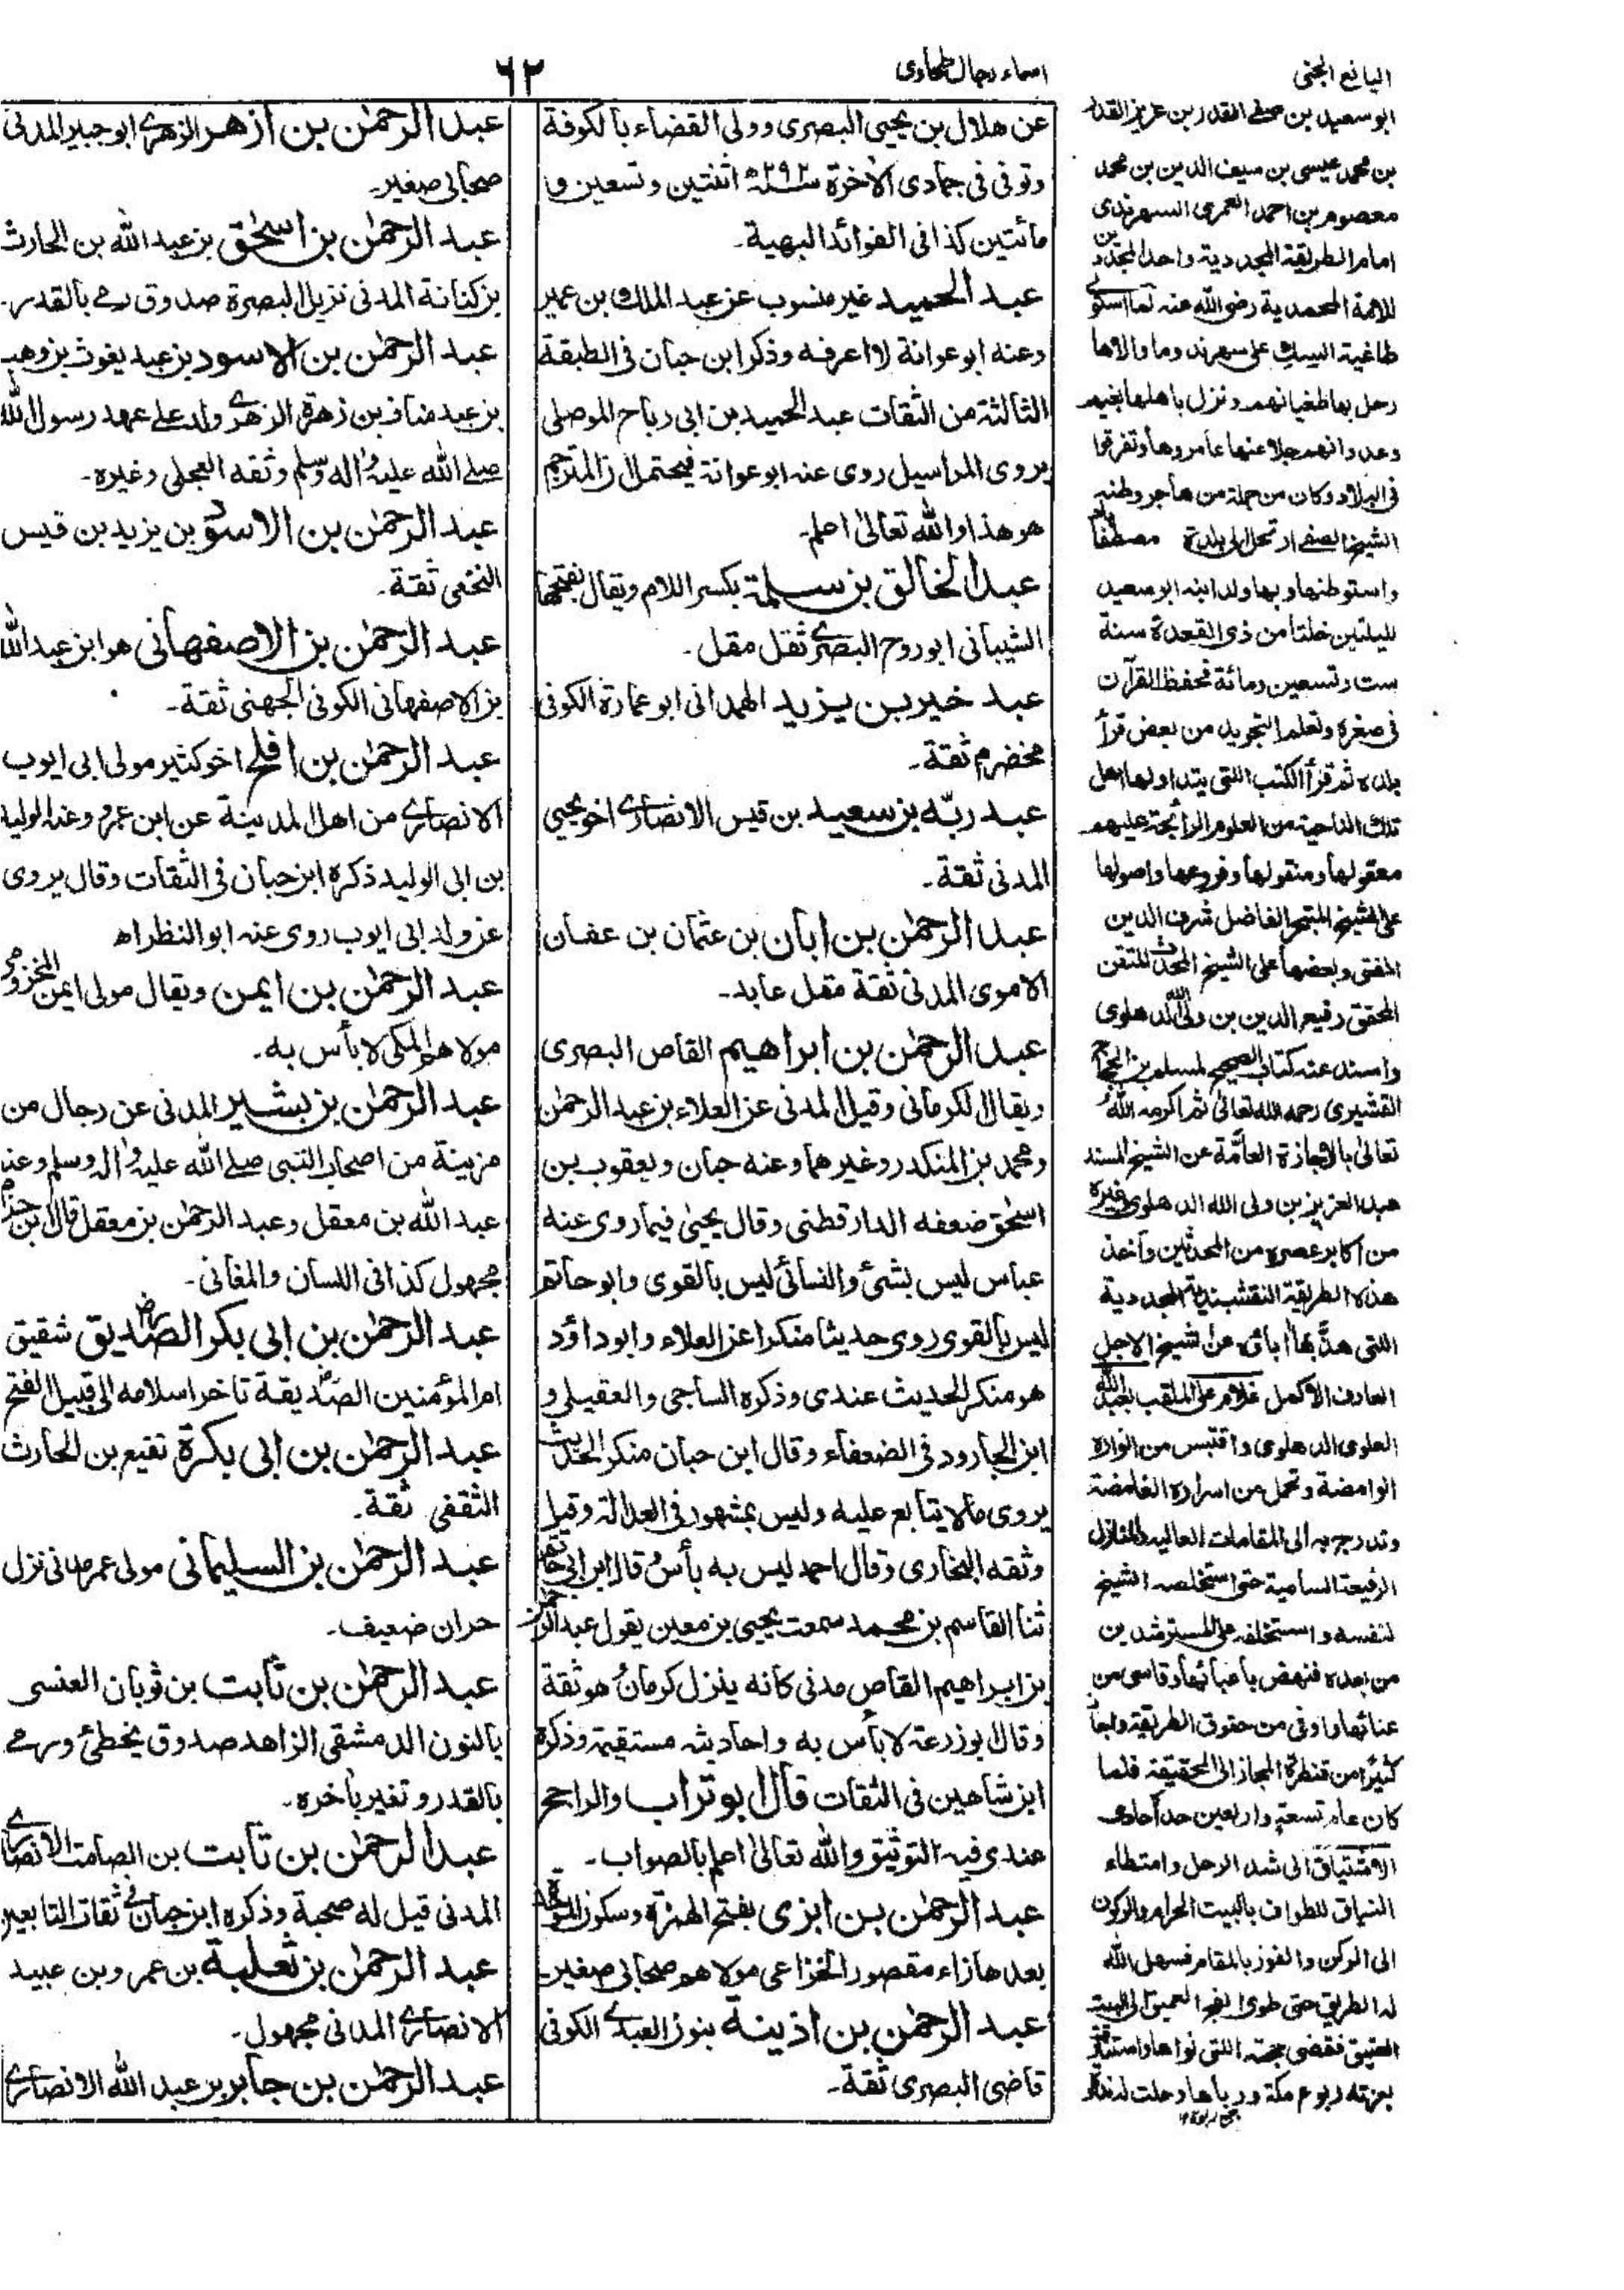 اليانع الجنى
اسماء رجال طحاوى
٦٢
عن هلال بن يحيى البصرى وولى القضاء بالكوفة
وتوفى فى جمادى الاٰخرة سنة ٢٩٢ه اثنتين وتسعين و
مأتين كذا فى الفوائد البهية۔
عبد الحميد غير منسوب عن عبد الملك بن عمير
وعنه ابو عوانة لا اعرفه وذكر ابن حبان فى الطبقة
الثالثة من الثقات عبد الحميد بن ابى رباح الموصلى
يروى المراسيل روى عنه ابو عوانة فيحتمل ان المترجم
هو هذا والله تعالىٰ اعلم۔
عبد الخالق بن سلمة بكسر اللام ويقال بفتحها
الشيبانى ابو روح البصرى ثقل مقل۔
عبد خير بن يزيد الهمدانى ابو عمارة الكوفى
مخضرم ثقة۔
عبد ربّه بن سعيد بن قيس الانصارى اخو يحيى
المدنى ثقة۔
عبد الرحمٰن بن ابان بن عثمان بن عفان
الاموى المدنى ثقة مقل عابد۔
عبد الرحمٰن بن ابراهيم القاص البصرى
ويقال الكرمانى وقيل المدنى عن العلاء بن عبد الرحمٰن
ومحمد بن المنكدر وغيرهما وعنه حبان ويعقوب بن
اسحٰق ضعفه الدارقطنى وقال يحيىٰ فيما روى عنه
عباس ليس بشئ والنسائى ليس بالقوى وابو حاتم
ليس بالقوى روى حديثا منكرا عن العلاء وابو داؤد
هو منكر الحديث عندى وذكره الساجى والعقيلى و
ابن الجارود فى الضعفاء وقال ابن حبان منكر الحديث
يروى مالا يتابع عليه وليس بمشهور فى العدالة وقيل
وثقه البخارى وقال احمد ليس به بأس قال ابن ابى حاتم
ثنا القاسم بن محمد سمعت يحيى بن معين يقول عبد الرحمٰن
بن ابراهيم القاص مدنى كانه ينزل كرمان هو ثقة
وقال ابو زرعة لا بأس به واحاديثه مستقيمة وذكره
ابن شاهين فى الثقات قال ابو تراب والراجح
عندى فيه التوثيق والله تعالىٰ اعلم بالصواب۔
عبد الرحمٰن بن ابزى بفتح الهمزة وسكون الموحدة
بعدها زاء مقصور الخزاعى مولاهم صحابى صغير۔
عبد الرحمٰن بن اذينة بنون العبدى الكوفى
قاضى البصرى ثقة۔
عبد الرحمٰن بن ازهر الزهرى ابو جبير المدنى
صحابى صغير۔
عبد الرحمٰن بن اسحٰق بن عبد الله بن الحارث
بن كنانة المدنى نزيل البصرة صدوق رمى بالقدر۔
عبد الرحمٰن بن الاسود بن عبد يغوث بن وهب
بن عبد مناف بن زهرة الزهرى ولد على عهد رسول الله
صلے الله عليه واٰله وسلم وثقه العجلى وغيره۔
عبد الرحمٰن بن الاسود بن يزيد بن قيس
النخعى ثقة۔
عبد الرحمٰن بن الاصفهانى هو ابن عبد الله
بن الاصفهانى الكوفى الجهنى ثقة۔
عبد الرحمٰن بن افلح اخو كثير مولى ابى ايوب
الانصارى من اهل المدينة عن ابن عمر وعنه الوليد
بن ابى الوليد ذكره ابن حبان فى الثقات وقال يروى
عن ولد ابى ايوب روى عنه ابو النظر اه
عبد الرحمٰن بن ايمن ويقال مولى ايمن المخزومى
مولاهم المكى لا بأس به۔
عبد الرحمٰن بن بشير المدنى عن رجال من
مزينة من اصحاب النبى صلے الله عليه واٰله وسلم وعنه
عبد الله بن معقل وعبد الرحمٰن بن معقل قال ابن حزم
مجهول كذا فى اللسان والمغانى۔
عبد الرحمٰن بن ابى بكر الصديق شقيق
ام المؤمنين الصديقة تاخر اسلامه الى قبيل الفتح
عبد الرحمٰن بن ابى بكرة نفيع بن الحارث
الثقفى ثقة۔
عبد الرحمٰن بن السليمانى مولى عمر مدنى نزل
حران ضعيف۔
عبد الرحمٰن بن ثابت بن ثوبان العنسى
بالنون الدمشقى الزاهد صدوق يخطئ ورمى
بالقدر وتغير بأخره۔
عبد الرحمٰن بن ثابت بن الصامت الانصارى
المدنى قيل له صحبة وذكره ابن حبان فى ثقات التابعين
عبد الرحمٰن بن ثعلبة بن عمرو بن عبيد
الانصارى المدنى مجهول۔
عبد الرحمٰن بن جابر بن عبد الله الانصارى
ابو سعيد بن صفى القدر بن عزيز القدر
بن محمد عيسى بن سيف الدين بن محمد
معصوم بن احمد العمرى السهرندى
امام الطريقة المجددية واحد المجددين
للامة المحمدية رضى الله عنه لما استولى
طاغية السيك على سهرند وما والاها
رحل بها طغيانهم ونزل باهلها بغيهم
وعدوانهم جلا عنها عامروها وتفرقوا
فى البلاد وكان من جملة من هاجر وطنه
الشيخ الصفى ارتحل الى بلدة مصطفاباد
واستوطنها وبها ولد ابنه ابو سعيد
لليلتين خلتا من ذى القعدة سنة
ست وتسعين ومائة فحفظ القرآن
فى صغره وتعلم التجويد من بعض قرأ
بلده ثم قرأ الكتب اللتى يتداولها اهل
تلك الناحية من العلوم الرائجة عليهم
معقولها ومنقولها وفروعها واصولها
على الشيخ المتبحر الفاضل شرف الدين
المفتى وبعضها على الشيخ المحدث المتقن
المحقق رفيع الدين بن ولى الله الدهلوى
واسند عنه كتاب الصحيح لمسلم بن الحجاج
القشيرى رحمه الله تعالىٰ ثم اكرمه الله
تعالىٰ بالاجازة العامّة عن الشيخ المسند
عبد العزيز بن ولى الله الدهلوى وغيره
من اكابر عصره من المحدثين واخذ
هذه الطريقة النقشبندية المجددية
اللتى هذّبها اباؤه عن الشيخ الاجل
العارف الاكمل غلام على الملقب بعبد الله
العلوى الدهلوى واقتبس من انواره
الوامضة وتحمل من اسراره الغامضة
وتدرج به الى المقامات العاليه والمنازل
الرفيعة السامية حتى استخلصه الشيخ
لنفسه واستخلفه على المسترشدين
من بعده فنهض باعبائها وقاسى من
عنائها واوفى من حقوق الطريقة واجبا
كثيرا من قنطرة المجاز الى الحقيقة فلما
كان عام تسعة واربعين حداحادى
الاشتياق الى شد الرحل وامتطاء
النياق للطواف بالبيت الحرام والركون
الى الركن والفوز بالمقام فسهل الله
له الطريق حتى طوى الفج العميق الى البيت
العتيق فقضى حجته اللتى نواها واستنار
بعزته ربوع مكة ورباها وحلت لدنه